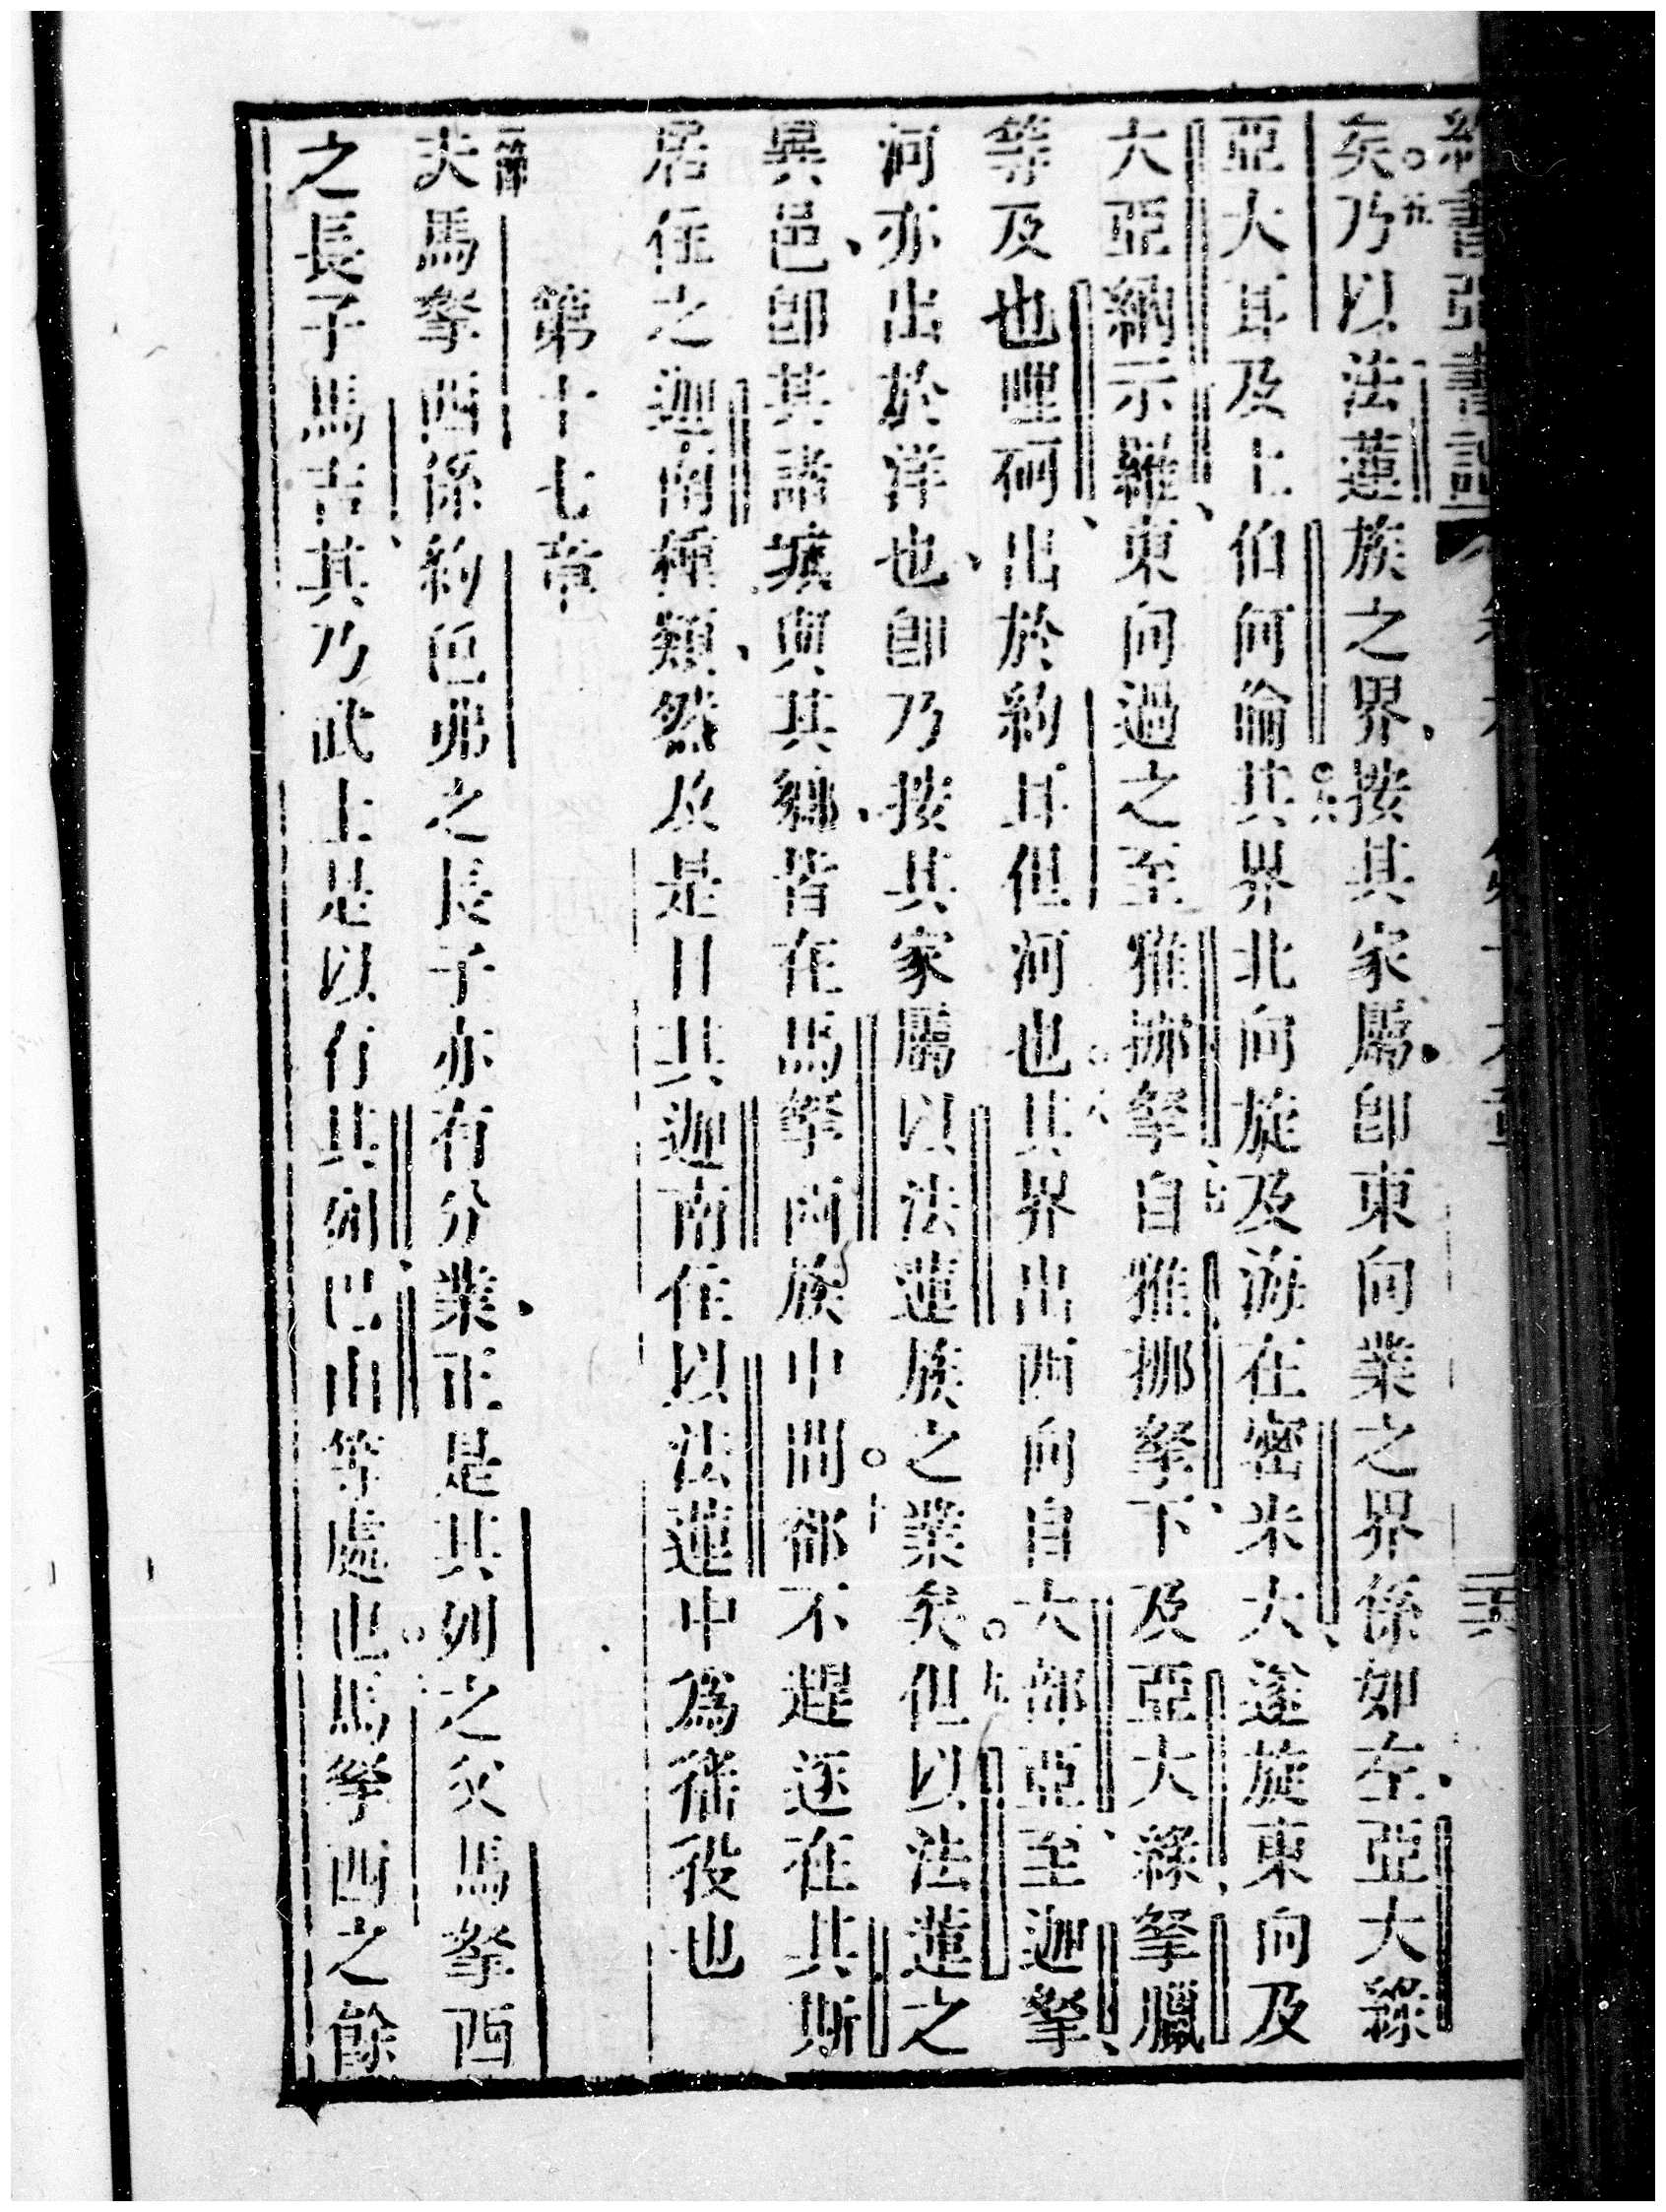 矣○五乃以法蓮族之界、按其家屬、卽東向業之界係如左、亞大綠
亞大耳及上伯何倫○六其界北向旋及海在密米大、遂旋東向及
大亞納示羅、東向過之至雅挪拏、○七自雅挪拏、下及亞大綠、拏臘
等及也哩砢、出於約耳但河也○八其界出西向自大部亞、至迦拏、
河、亦出於洋也、卽乃按其家屬以法蓮族之業矣○九但以法蓮之
異邑、卽其諸城與其鄉、皆在馬拏西族中間○十都不趕逐在其斯
居住之迦南種類、然及是日其迦南住以法蓮中為徭役也
第十七章
一節夫馬拏西係約色弗之長子亦有分業、正是其列之父馬拏西
之長子馬吉、其乃武士是以有其列、巴山等處也○二馬拏西之餘